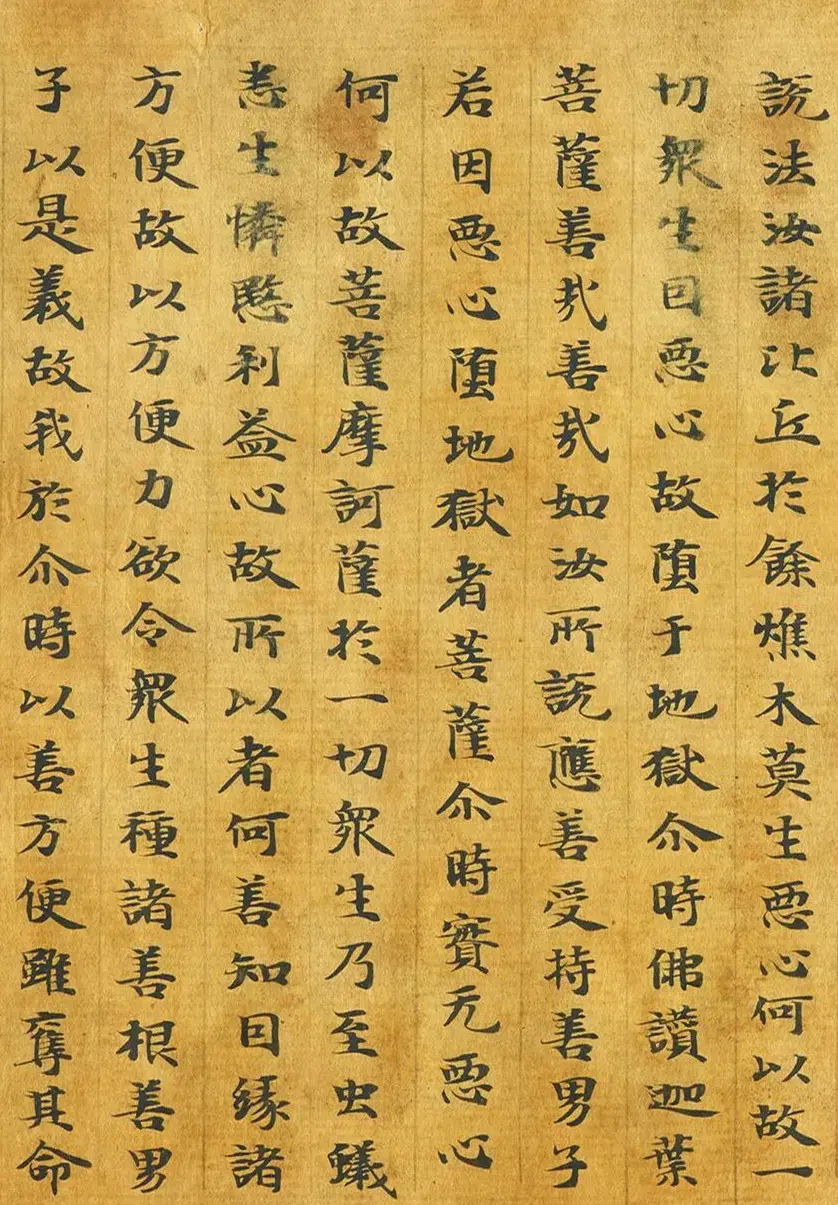 説法汝諸比丘於餘燋木莫生惡心何以故一
切衆生因惡心故堕于地獄尒時佛讃迦葉
菩薩善㢤善㢤如汝所説應善受持善男子
若因惡心堕地獄者菩薩尒時實无惡心
何以故菩薩摩訶薩於一切衆生乃至虫蟻
悉生憐愍利益心故所以者何善知因縁諸
方便故以方便力欲令衆生種諸善根善男
子以是義故我於尒時以善方便雖奪其命